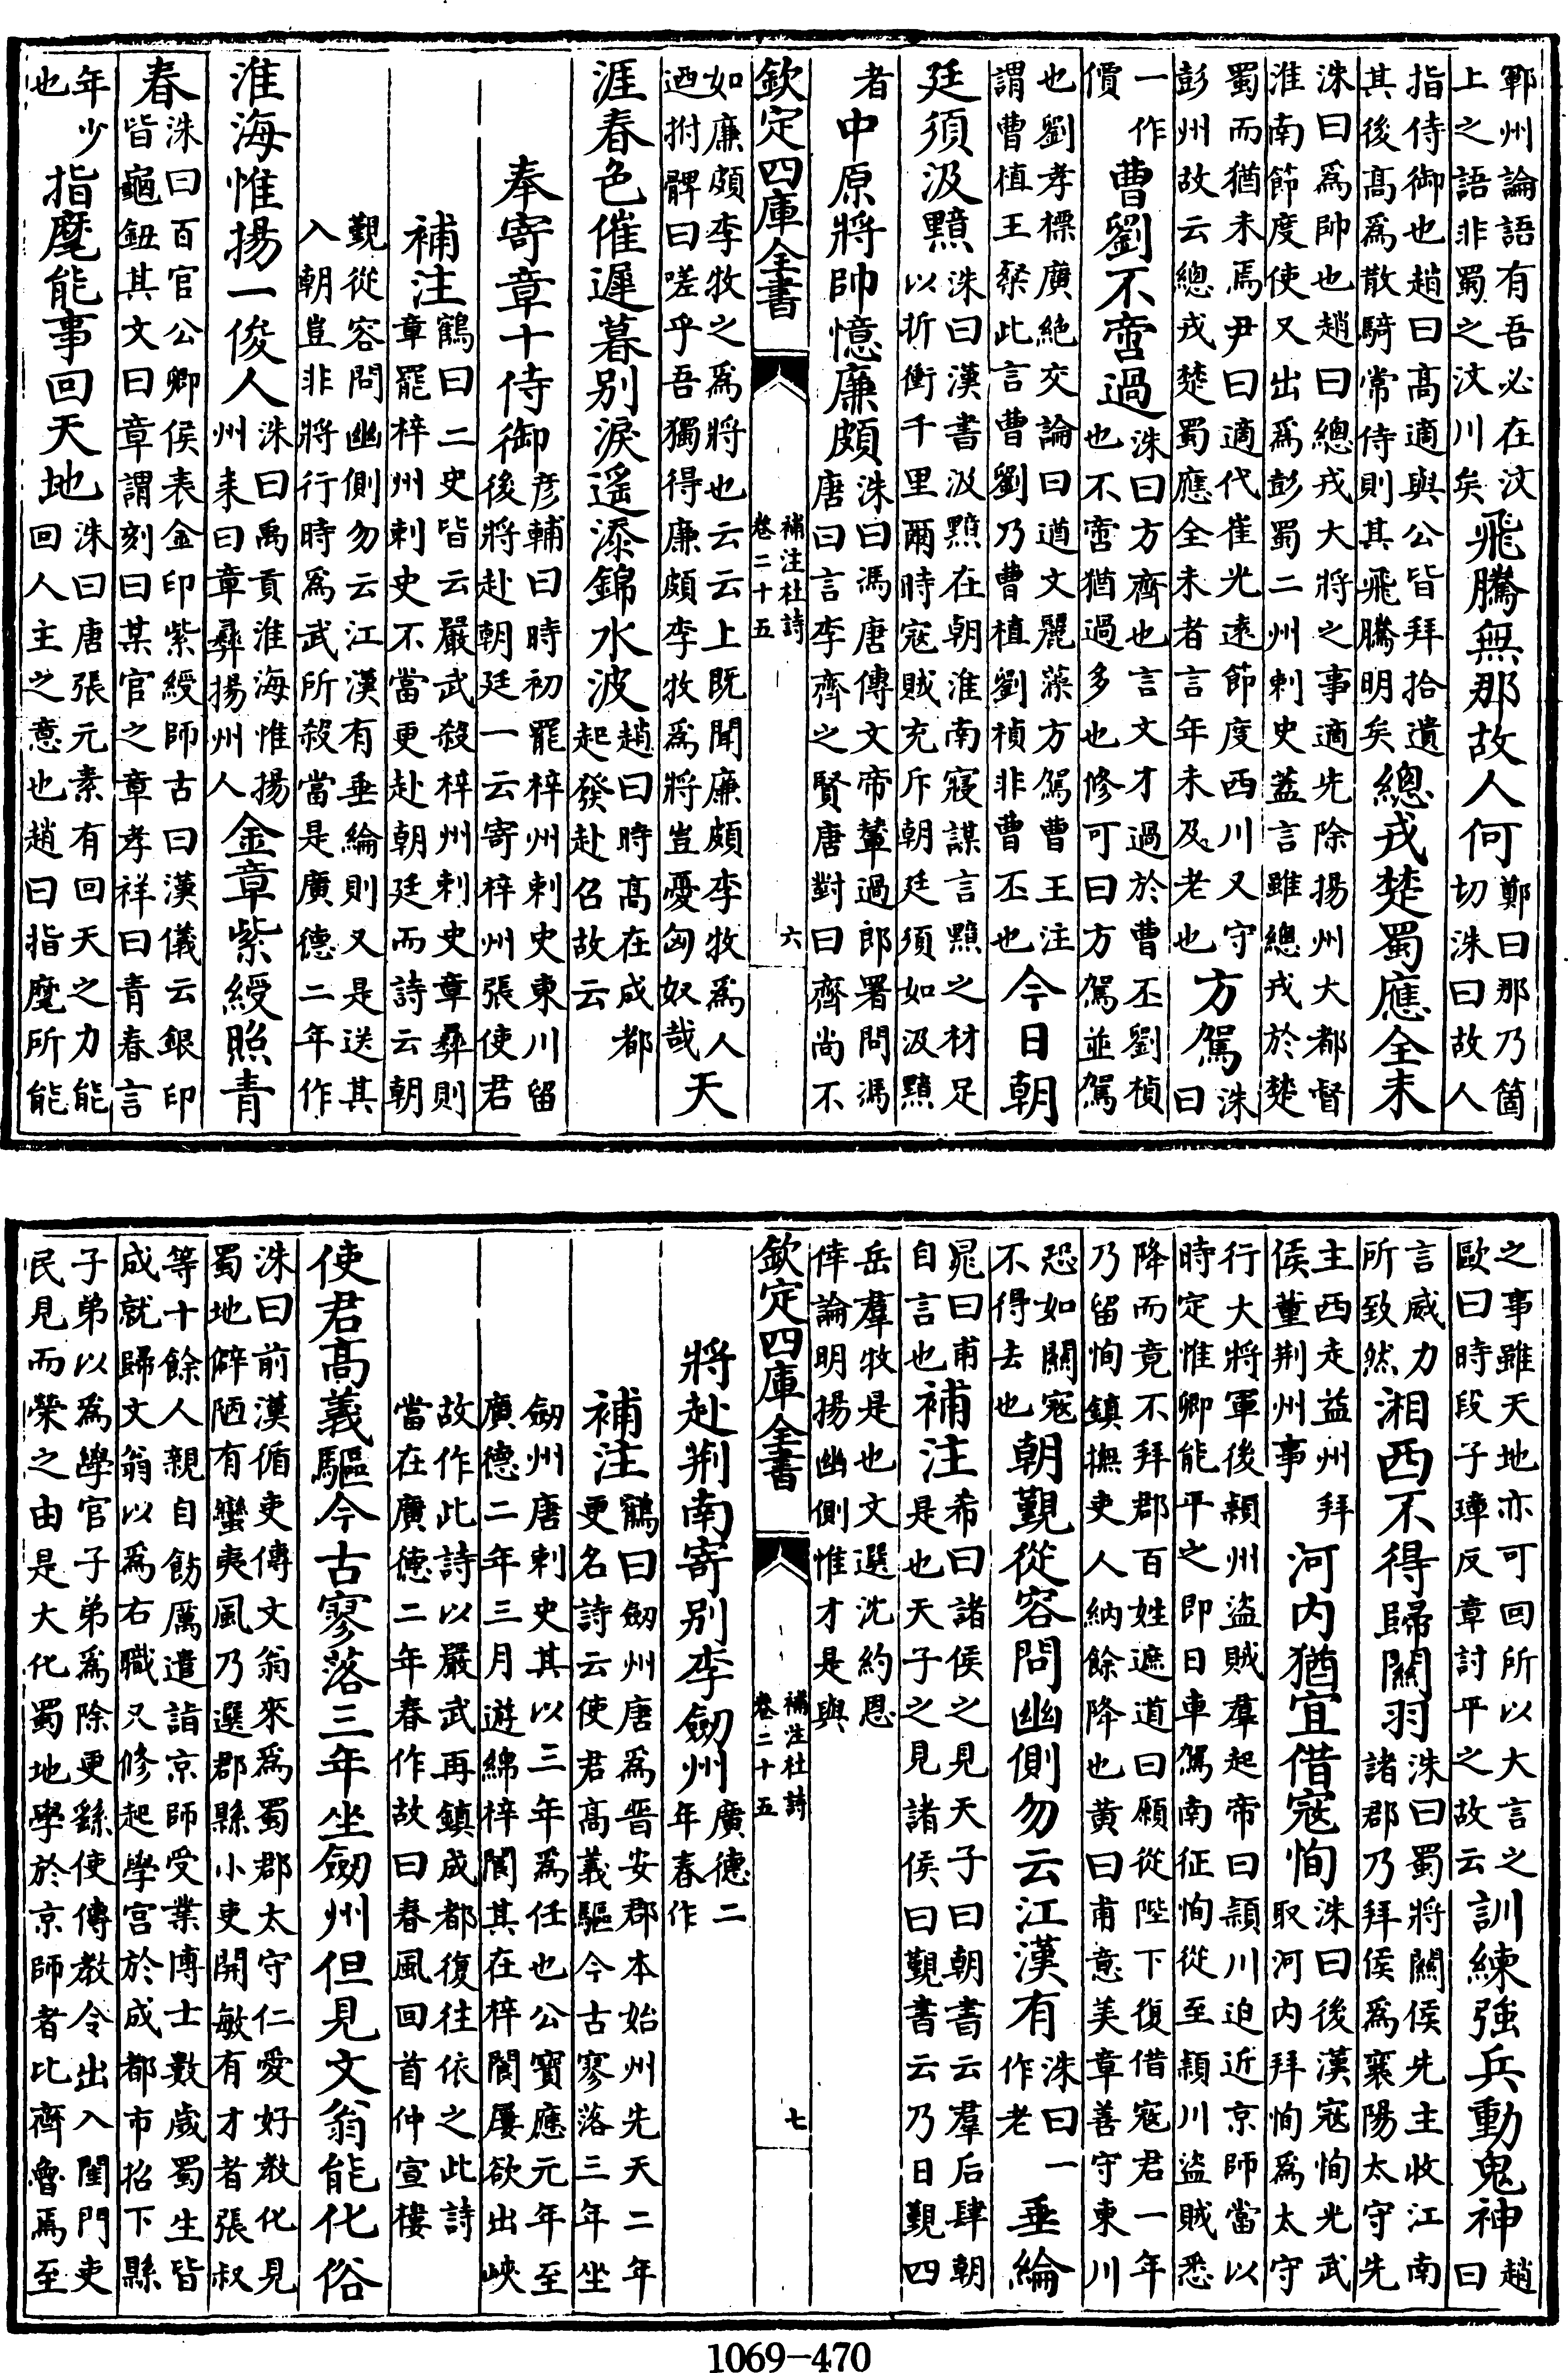 鄆州論語有吾必在汶上之語非蜀之汶川矣飛騰無那故人何鄭曰那乃箇切洙曰故人
指侍御也趙曰高適與公皆拜拾遺其後高為散騎常侍則其飛騰明矣總戎楚蜀應全未
洙曰為帥也趙曰總戎大將之事適先除揚州大都督淮南節度使又出為彭蜀二州刺史蓋言雖總戎於楚
蜀而猶未焉尹曰適代崔光遠節度西川又守彭州故云總戎楚蜀應全未者言年未及老也方駕洙曰
一作價曹劉不啻過洙曰方齊也言文才過於曹丕劉楨也不啻猶過多也修可曰方駕並駕
也劉孝標廣絶交論曰遒文麗藻方駕曹王注謂曹植王粲此言曹劉乃曹植劉楨非曹丕也今日朝
廷須汲黯洙曰漢書汲黯在朝淮南寢謀言黯之材足以折衝千里爾時寇賊充斥朝廷須如汲黯
者中原將帥憶廉頗洙曰馮唐傳文帝輦過郎署問馮唐曰言李齊之賢唐對曰齊尚不
欽定四庫全書 補注杜詩 卷二十五 六
如廉頗李牧之為將也云云上既聞廉頗李牧為人廼拊髀曰嗟乎吾獨得廉頗李牧為將豈憂匈奴哉天
涯春色催遲暮别淚遥添錦水波趙曰時高在成都起發赴召故云
奉寄章十侍御彦輔曰時初罷梓州刺史東川留後將赴朝廷一云寄梓州張使君
補注鶴曰二史皆云嚴武殺梓州刺史章彞則章罷梓州刺史不當更赴朝廷而詩云朝
覲從容問幽側勿云江漢有垂綸則又是送其入朝豈非將行時為武所殺當是廣德二年作
淮海惟揚一俊人洙曰禹貢淮海惟揚州耒曰章彞揚州人金章紫綬照青
春洙曰百官公卿侯表金印紫綬師古曰漢儀云銀印皆龜鈕其文曰章謂刻曰某官之章孝祥曰青春言
年少也指麾能事回天地洙曰唐張元素有回天之力能回人主之意也趙曰指麾所能
之事雖天地亦可回所以大言之歐曰時段子璋反章討平之故云訓練強兵動鬼神趙曰
言威力所致然湘西不得歸關羽洙曰蜀將關侯先主收江南諸郡乃拜侯為襄陽太守先
主西走益州拜侯董荆州事河内猶宜借寇恂洙曰後漢寇恂光武取河内拜恂為太守
行大將軍後潁州盗賊羣起帝曰潁川迫近京師當以時定惟卿能平之即日車駕南征恂從至潁川盗賊悉
降而竟不拜郡百姓遮道曰願從陛下復借寇君一年乃留恂鎮撫吏人納餘降也黄曰甫意美章善守東川
恐如關寇不得去也朝覲從容問幽側勿云江漢有洙曰一作老垂綸
晁曰甫自言也補注希曰諸侯之見天子曰朝書云羣后肆朝是也天子之見諸侯曰覲書云乃日覲四
岳羣牧是也文選沈約恩倖論明揚幽側惟才是與
欽定四庫全書 補注杜詩 卷二十五 七
將赴荆南寄别李劒州廣德二年春作
補注鶴曰劒州唐為晋安郡本始州先天二年更名詩云使君高義驅今古寥落三年坐
劒州唐刺史其以三年為任也公寶應元年至廣德二年三月遊綿梓閬其在梓閬屢欲出峽
故作此詩以嚴武再鎮成都復往依之此詩當在廣德二年春作故曰春風回首仲宣樓
使君高義驅今古寥落三年坐劒州但見文翁能化俗
洙曰前漢循吏傳文翁來為蜀郡太守仁愛好教化見蜀地僻陋有蠻夷風乃選郡縣小吏開敏有才者張叔
等十餘人親自飭厲遣詣京師受業博士數歲蜀生皆成就歸文翁以為右職又修起學宫於成都市招下縣
子弟以為學官子弟為除更繇使傳教令出入閨門吏民見而榮之由是大化蜀地學於京師者比齊魯焉至
1069-470